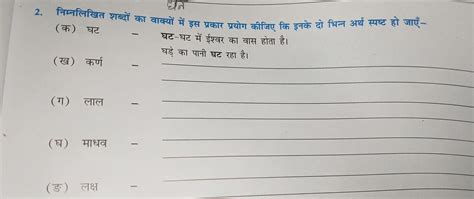 2. निम्नलिखित शब्दों का वाक्यों में इस प्रकार प्रयोग कीजिए कि इनके दो भिन्न अर्थ स्पष्ट हो जाएँ–
(क) घट – घट-घट में ईश्वर का वास होता है।
घड़े का पानी घट रहा है।
(ख) कर्ण –
(ग) लाल –
(घ) माधव –
(ङ) लक्ष –